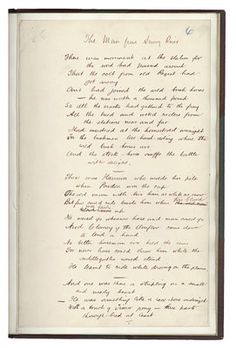 The Man from Snowy River
6
There was movement at the station for
the word had passed around
That the colt from old Regret had
got away
And had joined the wild bush horses
he was worth a thousand pound
So all the cracks had gathered to the fray
All the tried and noted riders from
the stations near and far
Had mustered at the homestead overnight
For the bushmen love hard riding where the
wild bush horses are
And the stock horse snuffs the battle
with delight.
There was Harrison who made his pile
when Pardon won the cup
The old man with his hair as white as snow
But few could ride beside him when
his blood
was fairly up
He would go wherever horse and man could go
And Clancy of the Overflow came down
to lend a hand
No better horseman ever held the reins
For never horse could throw him while the
saddle girths would stand
He learnt to ride while droving on the plains
And one was there a stripling on a small
and weedy beast
He was something like a racehorse undersized
With a touch of Timor pony three parts
thorough bred at least